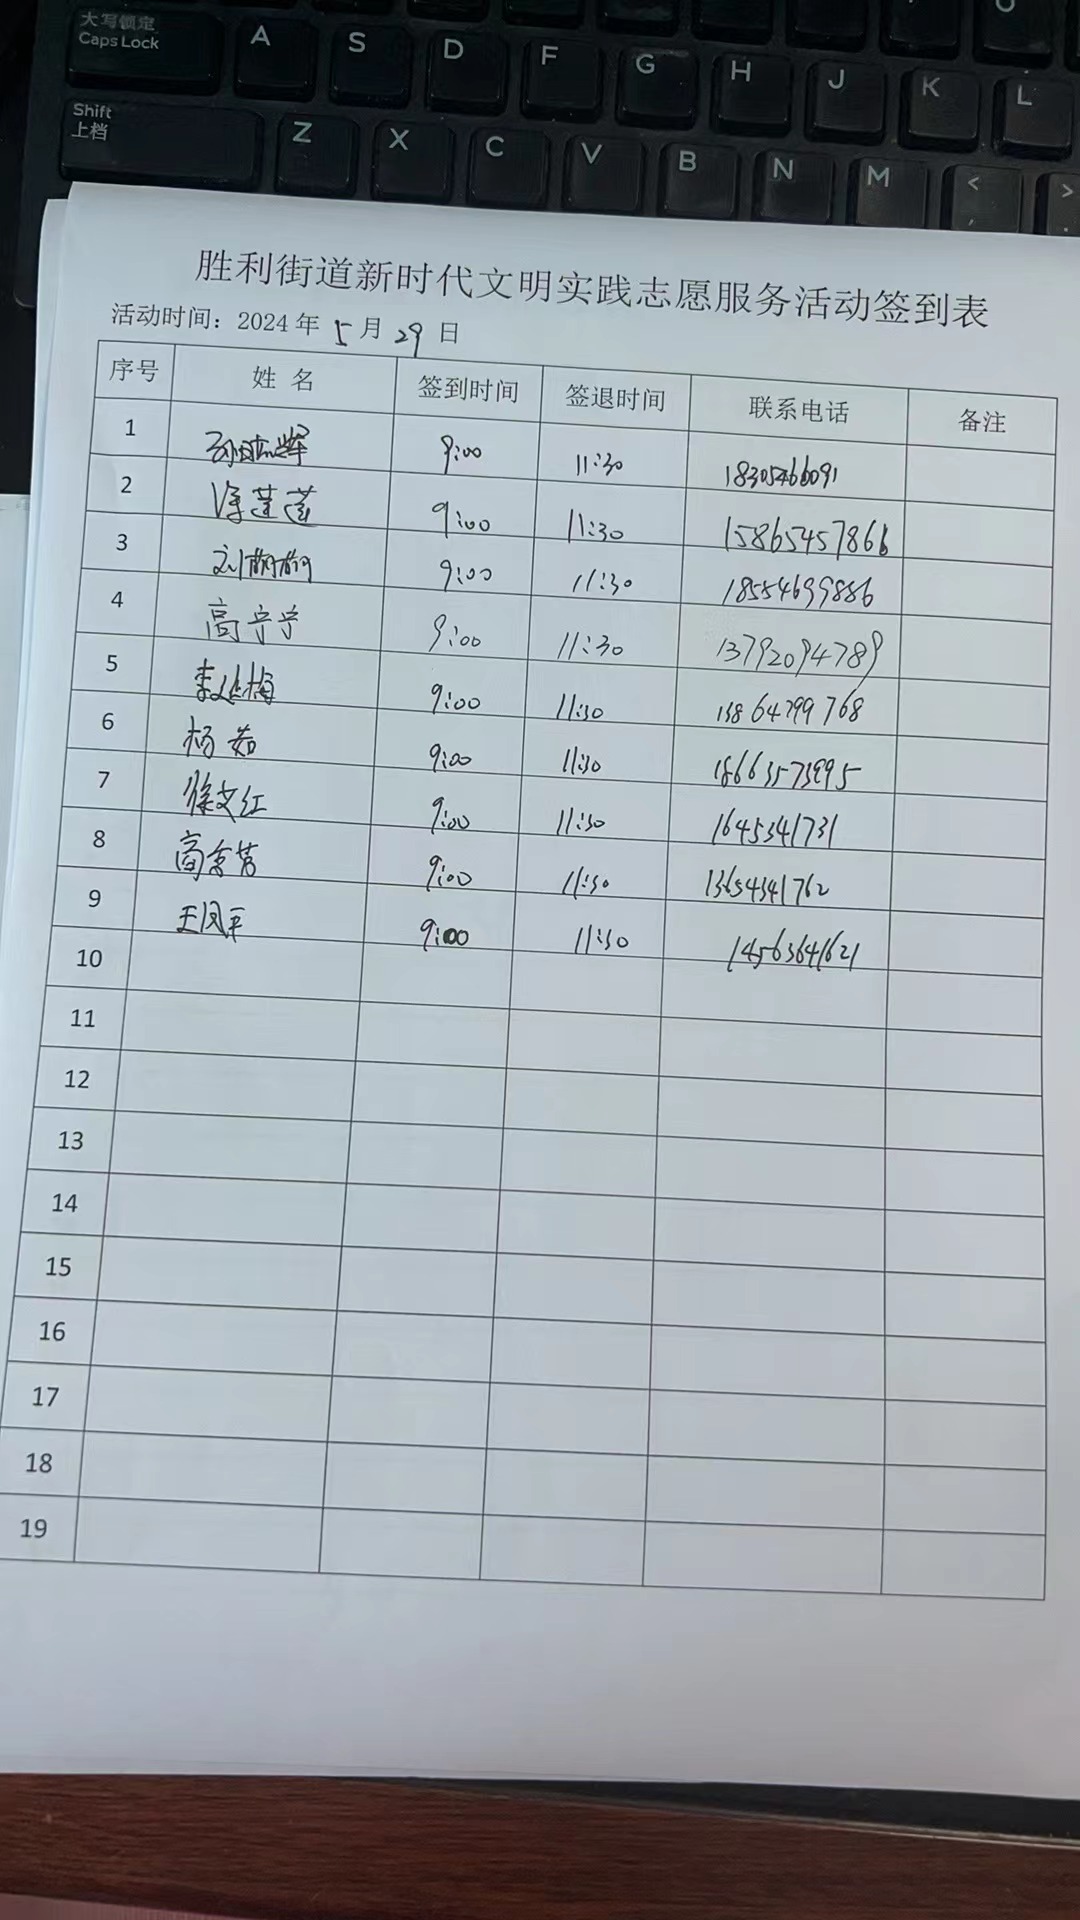 大写锁定
Caps Lock
A S D F G H J K L
Shift
上档
Z X C V B N M < >
胜利街道新时代文明实践志愿服务活动签到表
活动时间：2024年 5 月 29 日
序号 姓 名 签到时间 签退时间 联系电话 备注
1 9:00 11:30 18305466091
2 徐莲莲 9:00 11:30 15865457866
3 刘萌萌 9:00 11:30 18554699886
4 高宁宁 9:00 11:30 13792094789
5 9:00 11:30 13864799768
6 杨茹 9:00 11:30 18663573995
7 徐文红 9:00 11:30 1645341731
8 9:00 11:30 13654341762
9 王凤平 9:00 11:30 14563641621
10
11
12
13
14
15
16
17
18
19